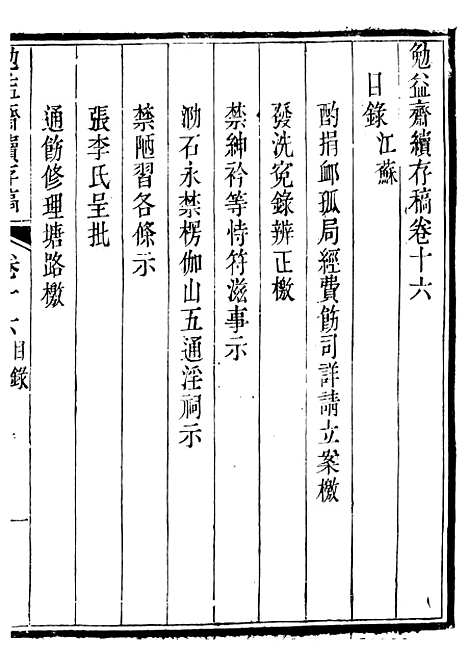 勉益齋續存稿卷十六
目錄 江蘇
酌捐卹孤局經費飭司詳請立案檄
發洗冤錄辨正檄
禁紳衿等恃符滋事示
泐石永禁楞伽山五通淫祠示
禁陋習各條示
張李氏呈批
通飭修理塘路檄
勉益齋續存稿 卷十六 目錄 一